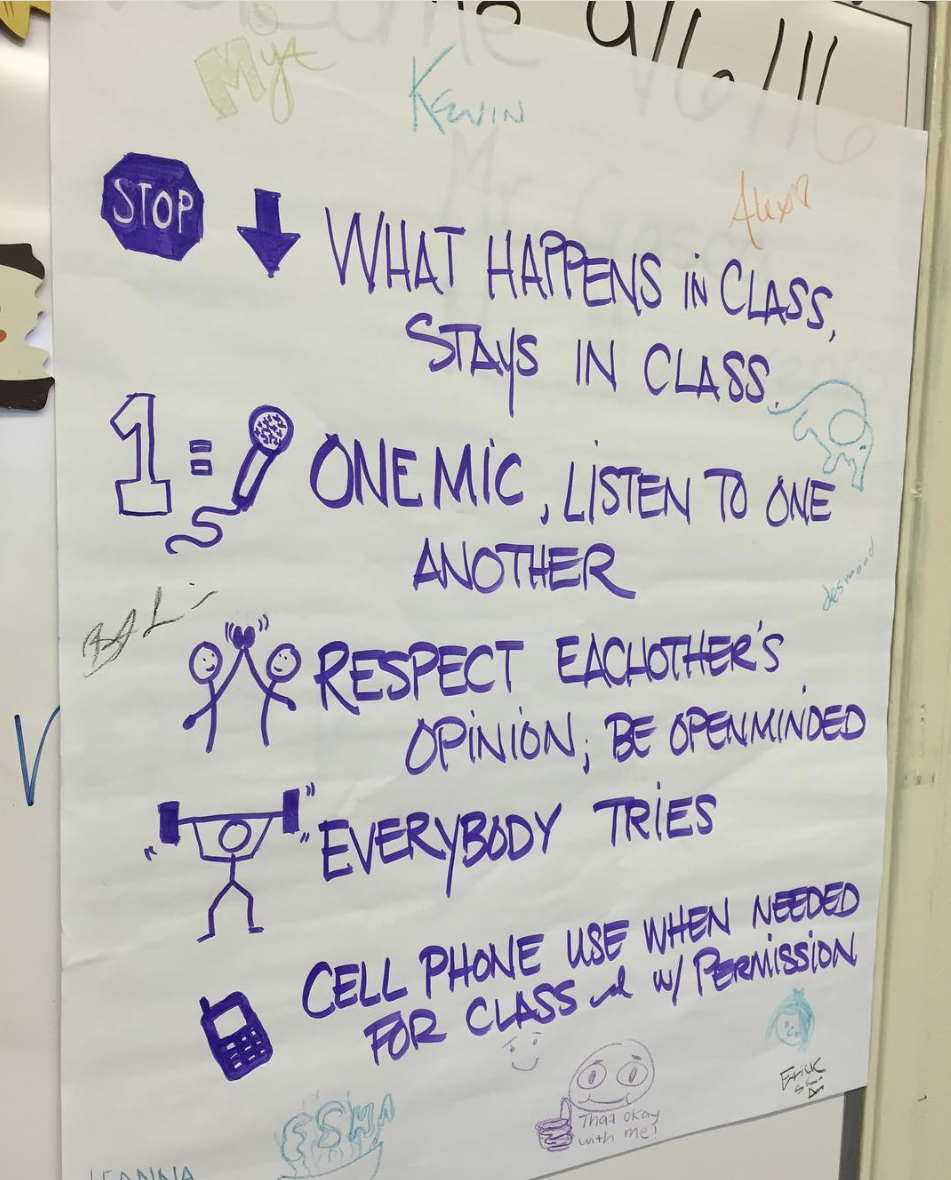 9/6/16
Myt
Kevin
Alex
STOP
WHAT HAPPENS in CLASS,
STAYS IN CLASS.
1 =
ONE MIC, LISTEN TO ONE
ANOTHER
desmond
RESPECT EACHOTHER'S
OPINION; BE OPENMINDED
EVERYBODY TRIES
CELL PHONE USE WHEN NEEDED
FOR CLASS and w/ PERMISSION
Erick
That okay
with me!
ESMA
LEANNA